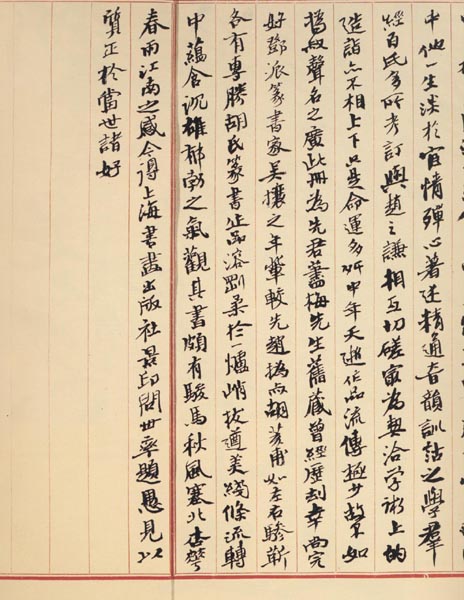 中他一生淡於宦情殫心著述精通音韻訓詁之學羣
經百氏多所考訂與趙之謙相互切磋最為契洽學術上的
造詣亦不相上下只是命運多舛中年夭逝作品流傳極少故不如
撝叔聲名之廣此冊為先君藎梅先生舊藏曾經歷劫幸尚完
好鄧派篆書家吳攘之年輩較先趙撝而胡荄甫如左右驂靳
各有專勝胡氏篆書能溶剛柔於一爐峭拔遒美綫條流轉
中蘊含沉雄郁勃之氣觀其書頗有駿馬秋風塞北杏花
春雨江南之感今得上海書畫出版社景印問世率題愚見以
質正於當世諸好